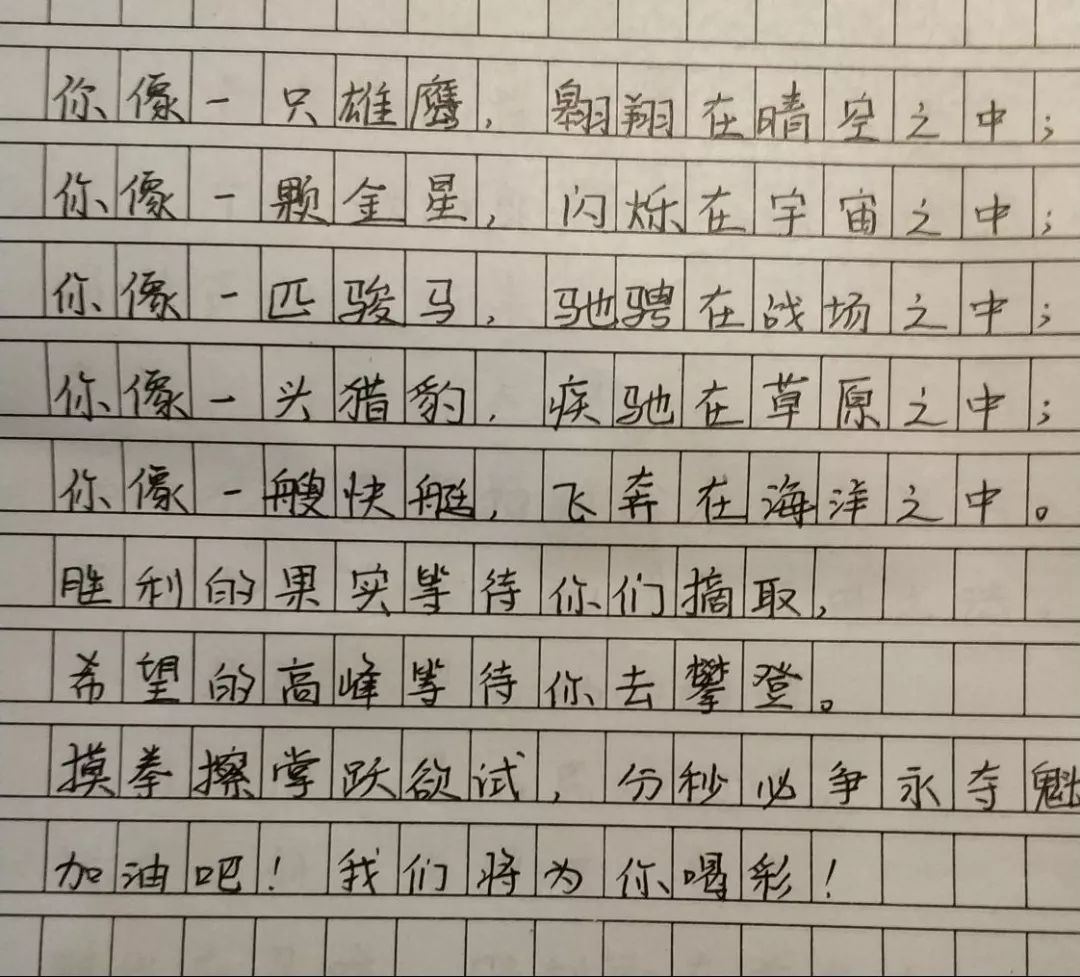 你像一只雄鹰，翱翔在晴空之中；
你像一颗金星，闪烁在宇宙之中；
你像一匹骏马，驰骋在战场之中；
你像一头猎豹，疾驰在草原之中；
你像一艘快艇，飞奔在海洋之中。
胜利的果实等待你们摘取，
希望的高峰等待你去攀登。
摸拳擦掌跃欲试，分秒必争永夺魁
加油吧！我们将为你喝彩！